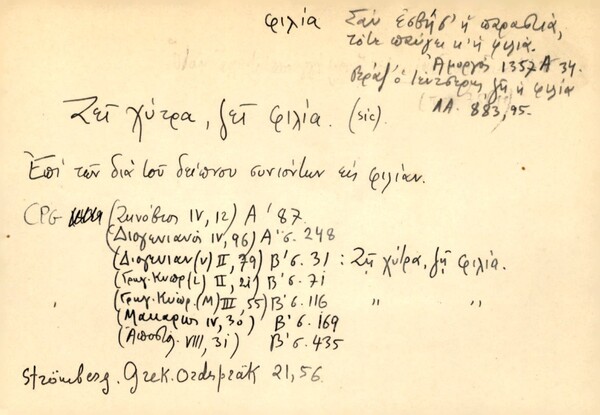 φιλία
Σὰν ἐσβῆσ' ἡ παραστιά,
τότε παύγει κ' ἡ φιλιά.
Ἀμοργός 1357 Α 34.
ζῇ ἡ φιλία
ΛΑ. 883, 95.
Ζεῖ χύτρα, ζεῖ φιλία. (sic).
Ἐπὶ τῶν διὰ τοῦ δείπνου συνιόντων εἰς φιλίαν.
CPG (Ζηνόβιος IV, 12) Α' 87.
(Διογενιανός IV, 96) Α' σ. 248
(Διογενιαν (v) II, 79) Β' σ. 31 : Ζῇ χύτρα, ζῇ φιλία.
(Γρηγ. Κυπρ (L) II, 2i) Β' σ. 71
(Γρηγ. Κυπρ. (M) III, 55) Β' σ. 116 " "
(Μακάριος IV, 30) Β' σ. 169
(Ἀποστ. VIII, 3i) Β' σ. 435
Strömberg. Grek. Ordspräk 21, 56.